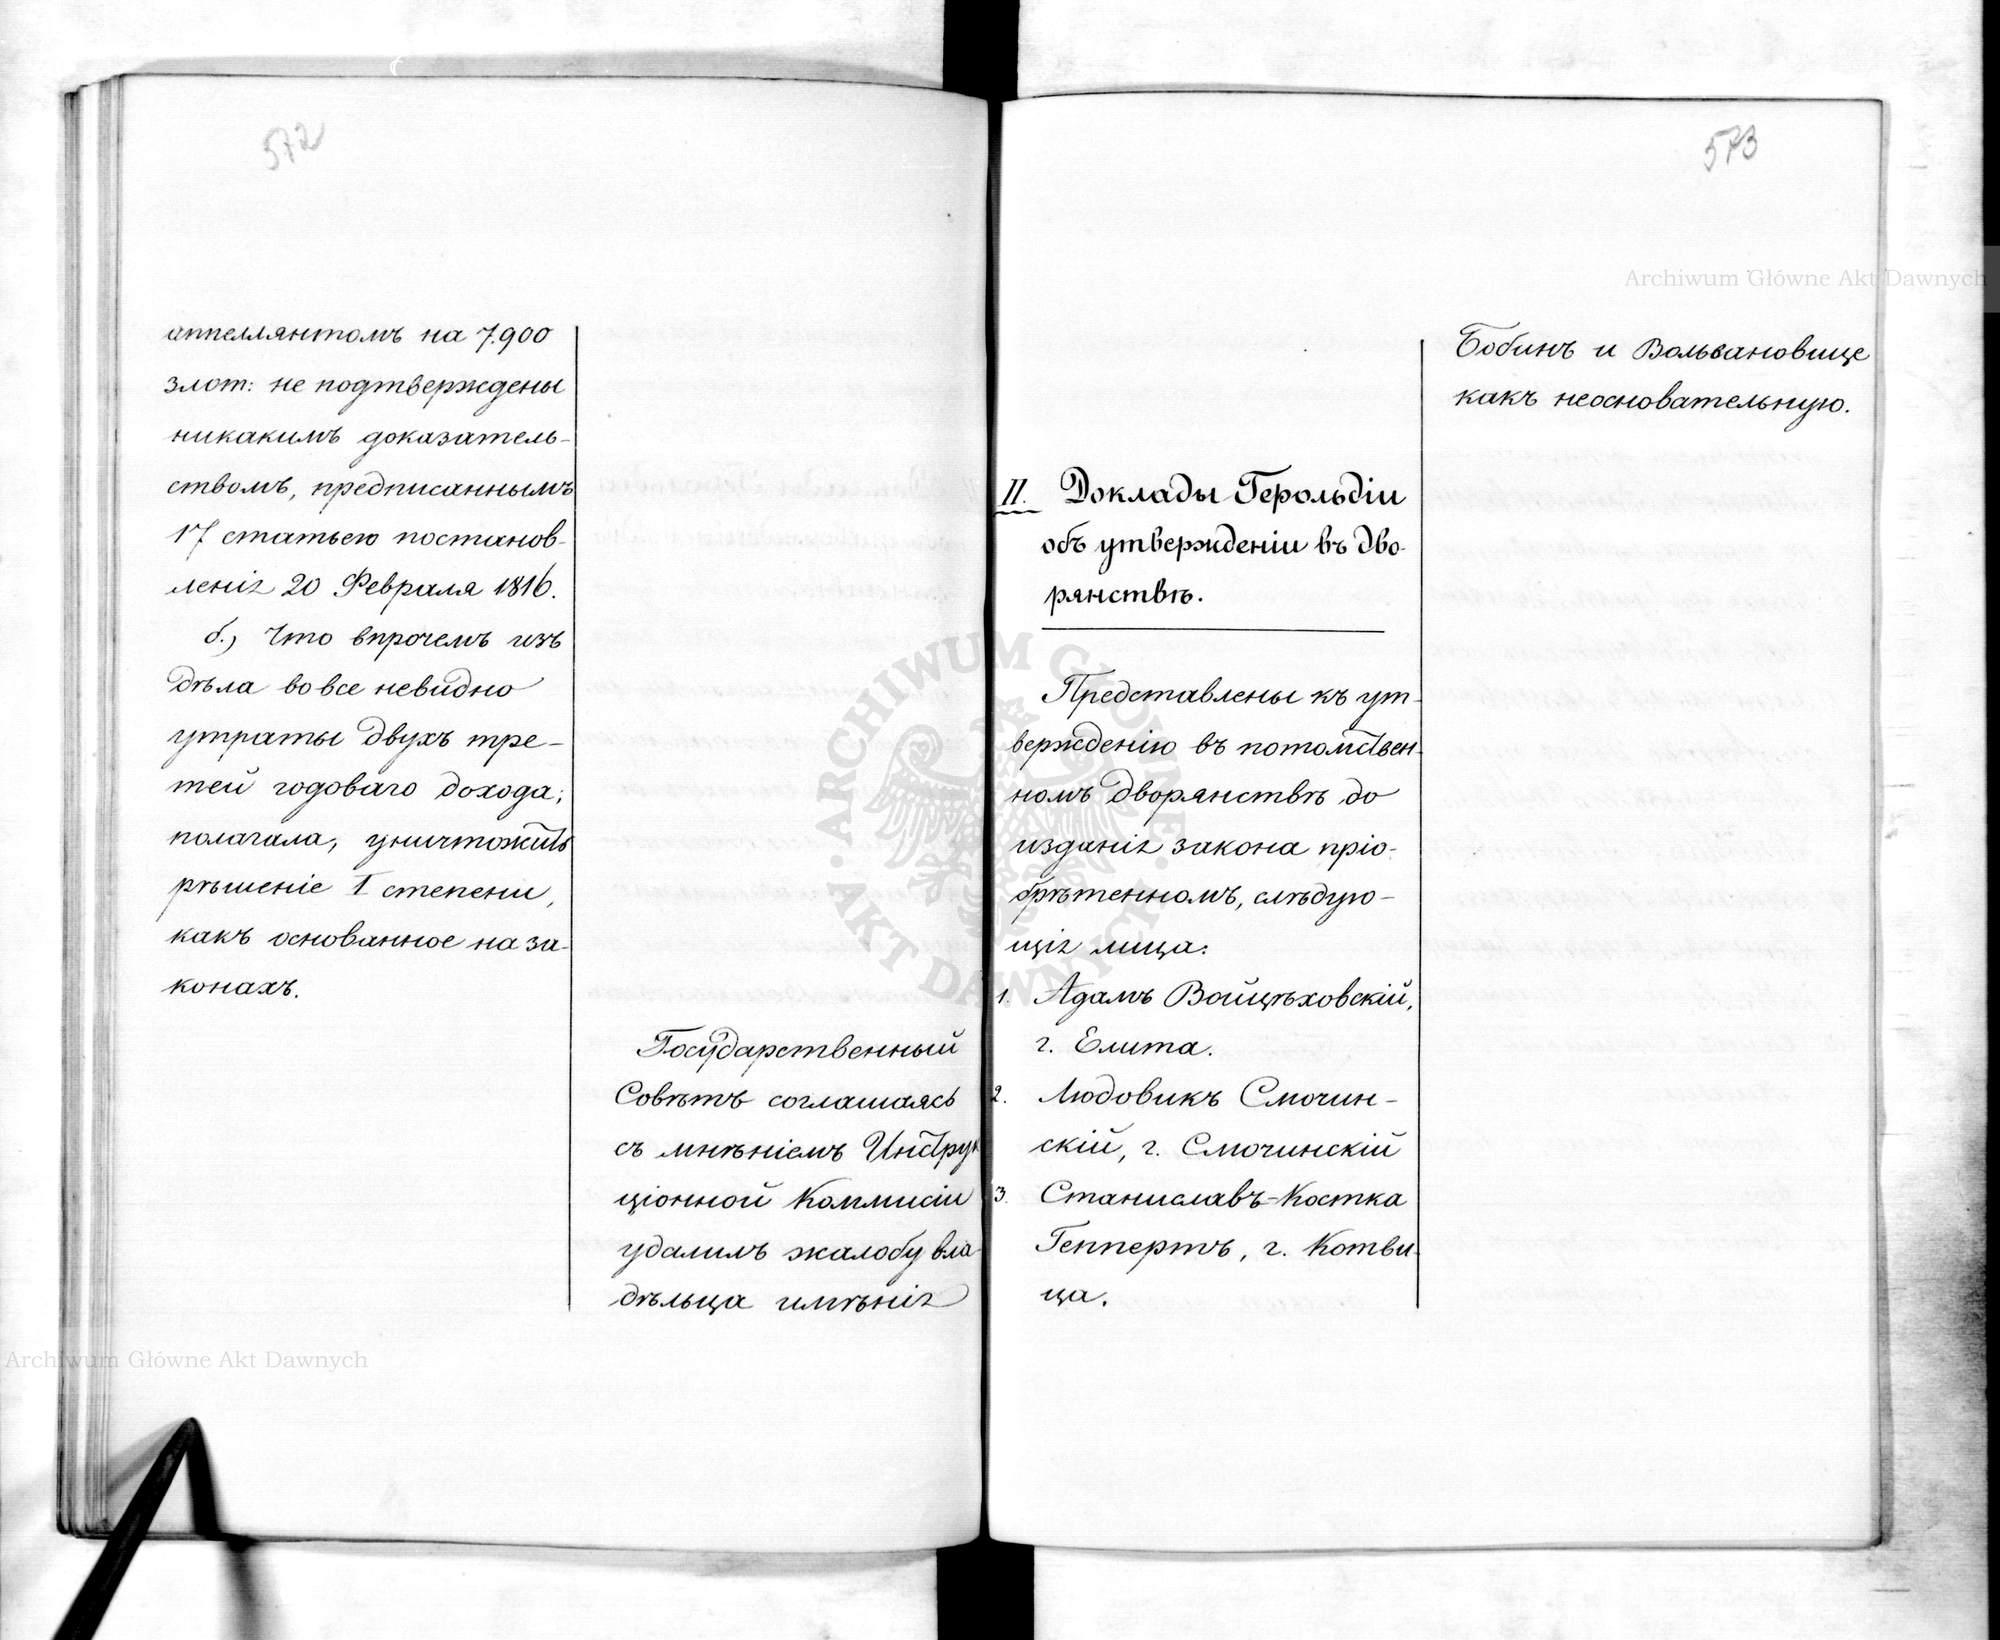 572
аппеллянтомъ на 7.900
злот: не подтверждены
никакимъ доказатель-
ствомъ, предписаннымъ
17 статьею постанов-
леніе 20 Февраля 1816.
б.) Что впрочемъ изъ
дѣла вовсе невидно
утраты двухъ тре-
тей годоваго дохода;
полагала, уничтожить
рѣшеніе I степени,
какъ основанное на за-
конахъ.
Государственный
Совѣтъ соглашаясь
съ мнѣніемъ Инструк
ціонной Коммисіи
удалилъ жалобу вла-
дѣльца имѣнія
573
Бобинъ и Вольвановице
какъ неосновательную.
II. Доклады Герольдіи
объ утвержденіи въ дво-
рянствѣ.
Представлены къ ут-
вержденію въ потомствен-
номъ дворянствѣ до
изданія закона пріо-
брѣтенномъ, слѣдую-
щія лица:
1. Адамъ Войцѣховскій,
г. Елита.
2. Людовикъ Смочин-
скій, г. Смочинскій
3. Станиславъ-Костка
Геппертъ, г. Котви-
ца.
Archiwum Główne Akt Dawnych
Archiwum Główne Akt Dawnych
ARCHIWUM GŁÓWNE AKT DAWNYCH